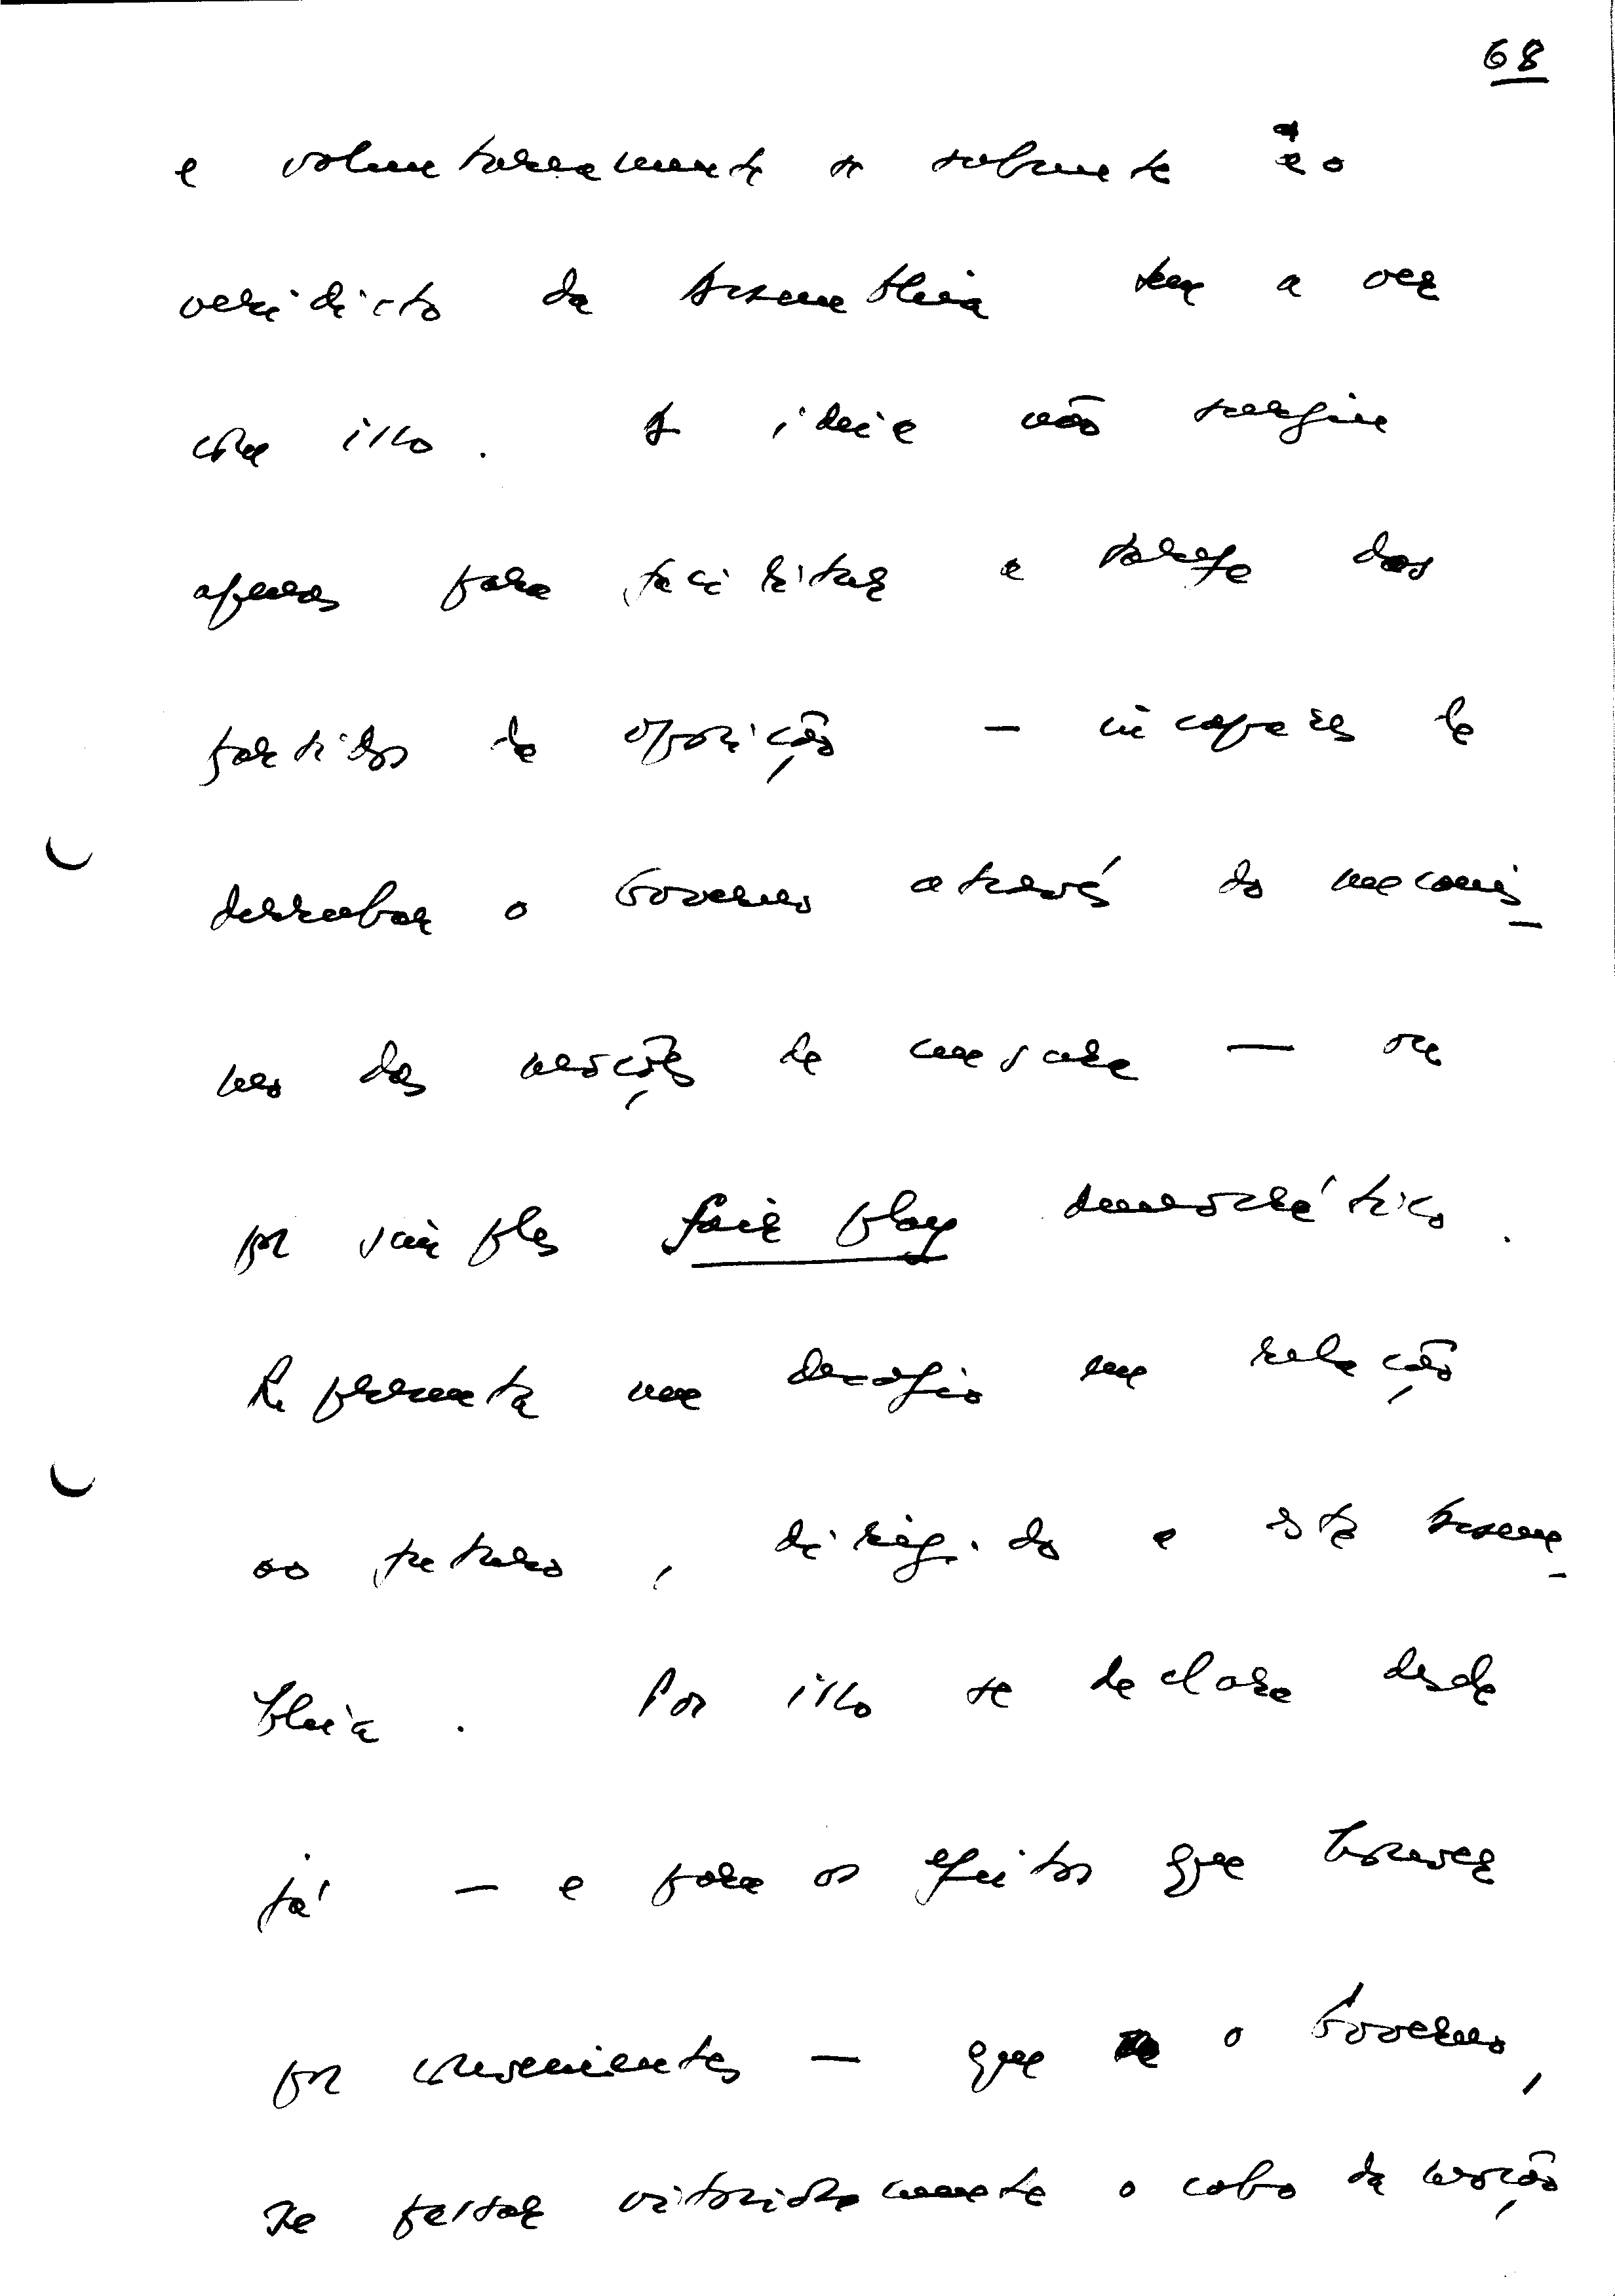 68
e voluntariamente se submete ao
veridicto da Assembleia tem a ver
com isso. A ideia não surgiu
apenas para facilitar a tarefa dos
partidos da oposição — incapazes de
derrubar o Governo através do mecanis-
mo das moções de censura — ou
por simples fair play democrático.
Representa um desafio em relação
ao futuro, dirigido a esta Assem-
bleia. Por isso se declara desde
já — e para os efeitos que houver
por convenientes — que o Governo,
se passar vitoriosamente o cabo da moção